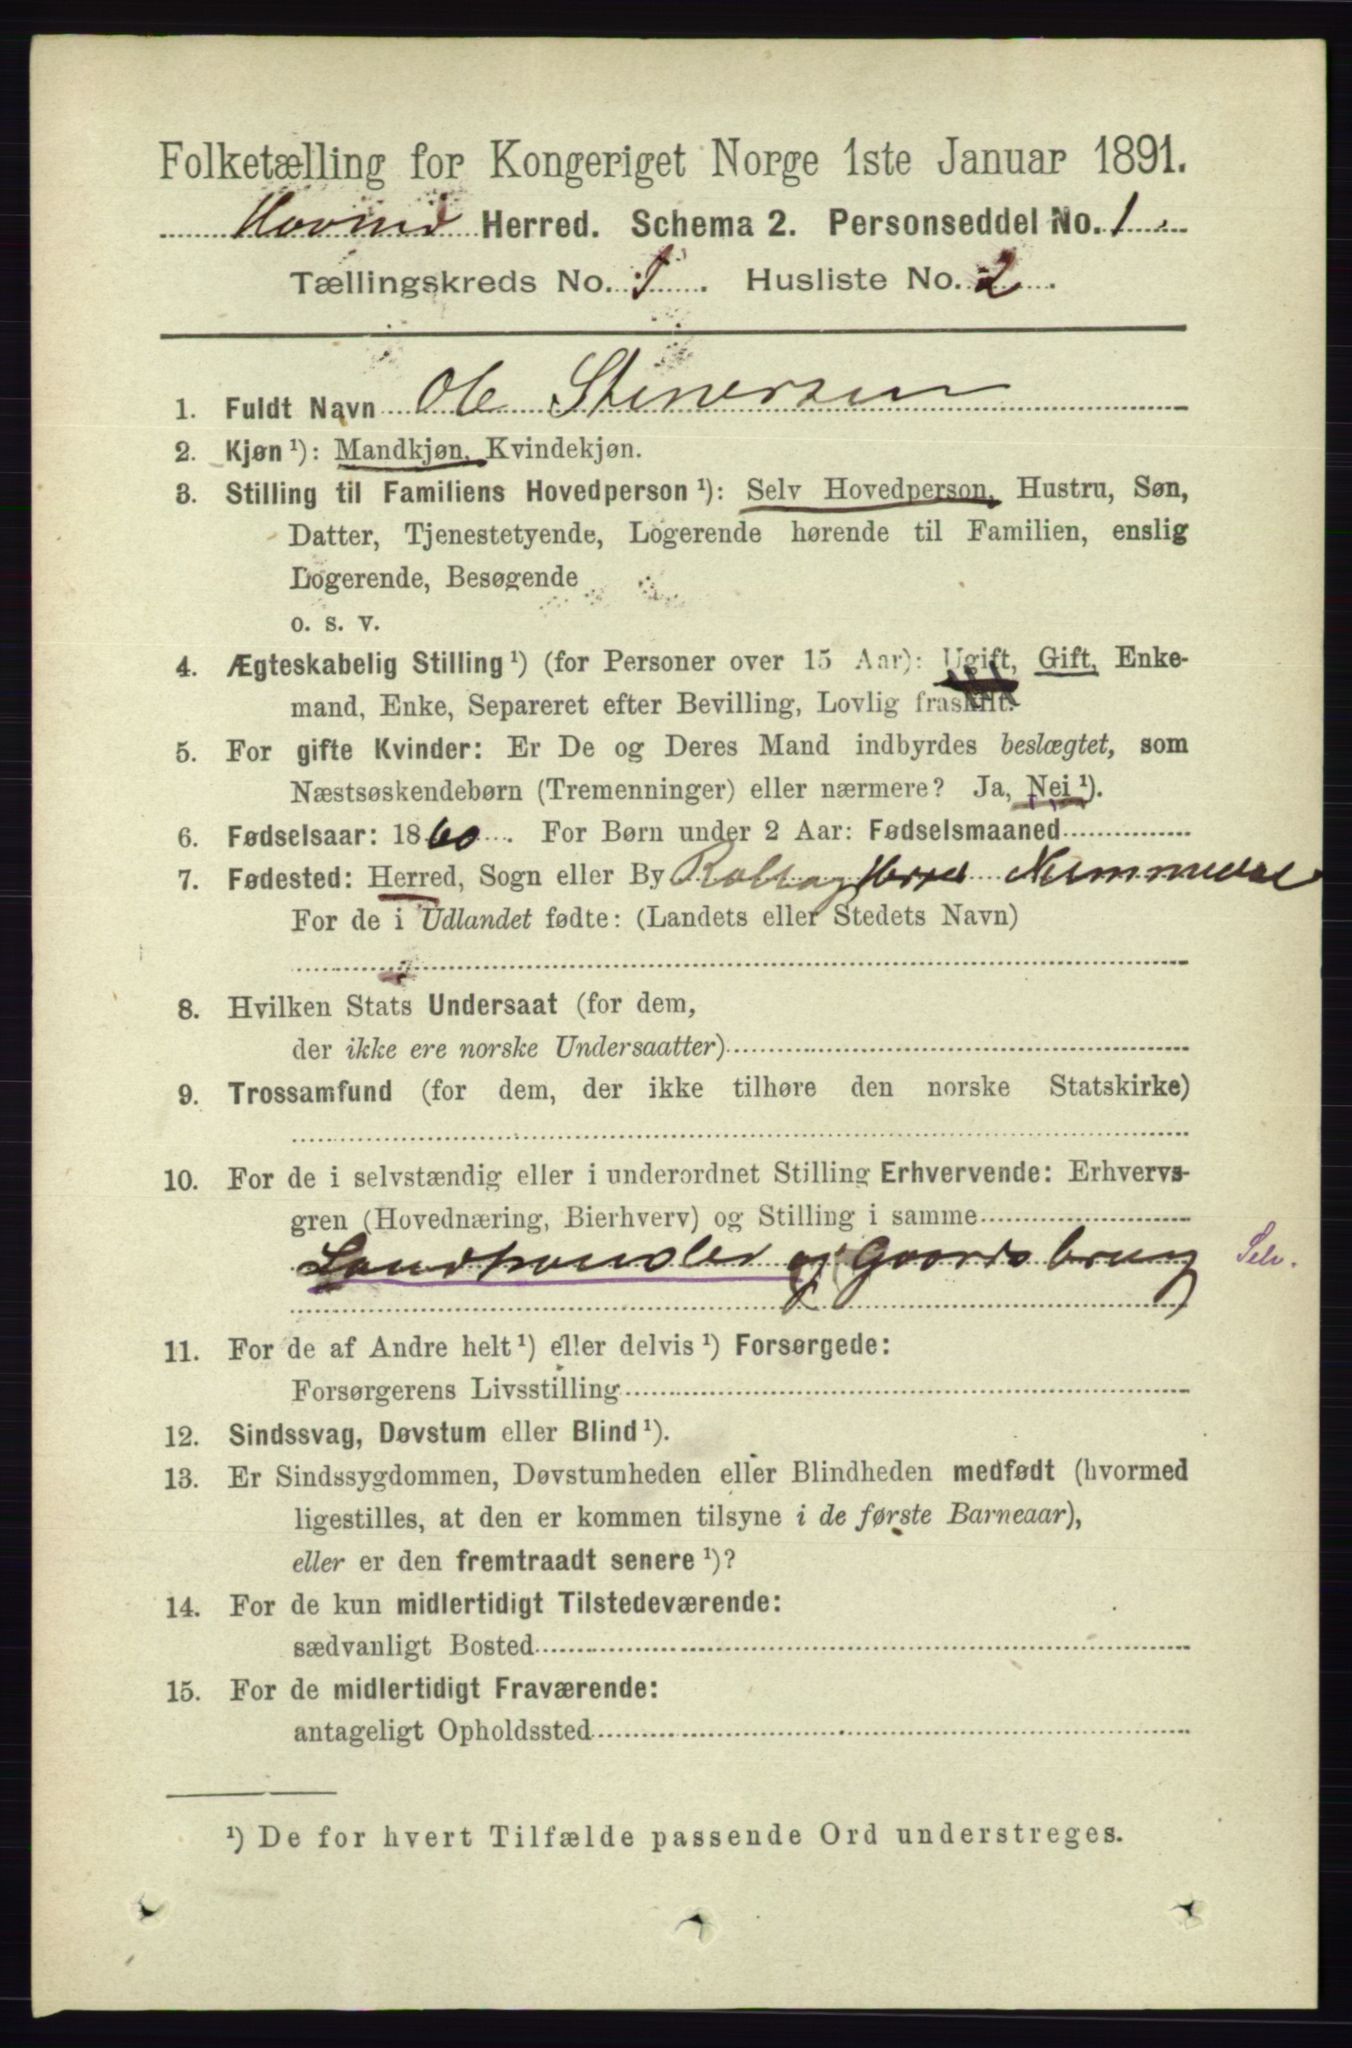 Folketælling for Kongeriget Norge 1ste Januar 1891.
Hovind Herred. Schema 2. Personseddel No. 1
Tællingskreds No. 1. Husliste No. 2.
1. Fuldt Navn Ole Stenersen
2. Kjøn ¹): Mandkjøn, Kvindekjøn.
3. Stilling til Familiens Hovedperson ¹): Selv Hovedperson, Hustru, Søn,
Datter, Tjenestetyende, Logerende hørende til Familien, enslig
Logerende, Besøgende
o. s. v.
4. Ægteskabelig Stilling ¹) (for Personer over 15 Aar): Ugift, Gift, Enke-
mand, Enke, Separeret efter Bevilling, Lovlig fraskilt.
5. For gifte Kvinder: Er De og Deres Mand indbyrdes beslægtet, som
Næstsøskendebørn (Tremenninger) eller nærmere? Ja, Nei ¹).
6. Fødselsaar: 1860. For Børn under 2 Aar: Fødselsmaaned
7. Fødested: Herred, Sogn eller By Rollag Herred Nummedal
For de i Udlandet fødte: (Landets eller Stedets Navn)
8. Hvilken Stats Undersaat (for dem,
der ikke ere norske Undersaatter)
9. Trossamfund (for dem, der ikke tilhøre den norske Statskirke)
10. For de i selvstændig eller i underordnet Stilling Erhvervende: Erhvervs-
gren (Hovednæring, Bierhverv) og Stilling i samme
Landhandler og Gaardsbrug Selv.
11. For de af Andre helt ¹) eller delvis ¹) Forsørgede:
Forsørgerens Livsstilling
12. Sindssvag, Døvstum eller Blind ¹).
13. Er Sindssygdommen, Døvstumheden eller Blindheden medfødt (hvormed
ligestilles, at den er kommen tilsyne i de første Barneaar),
eller er den fremtraadt senere ¹)?
14. For de kun midlertidigt Tilstedeværende:
sædvanligt Bosted
15. For de midlertidigt Fraværende:
antageligt Opholdssted
¹) De for hvert Tilfælde passende Ord understreges.